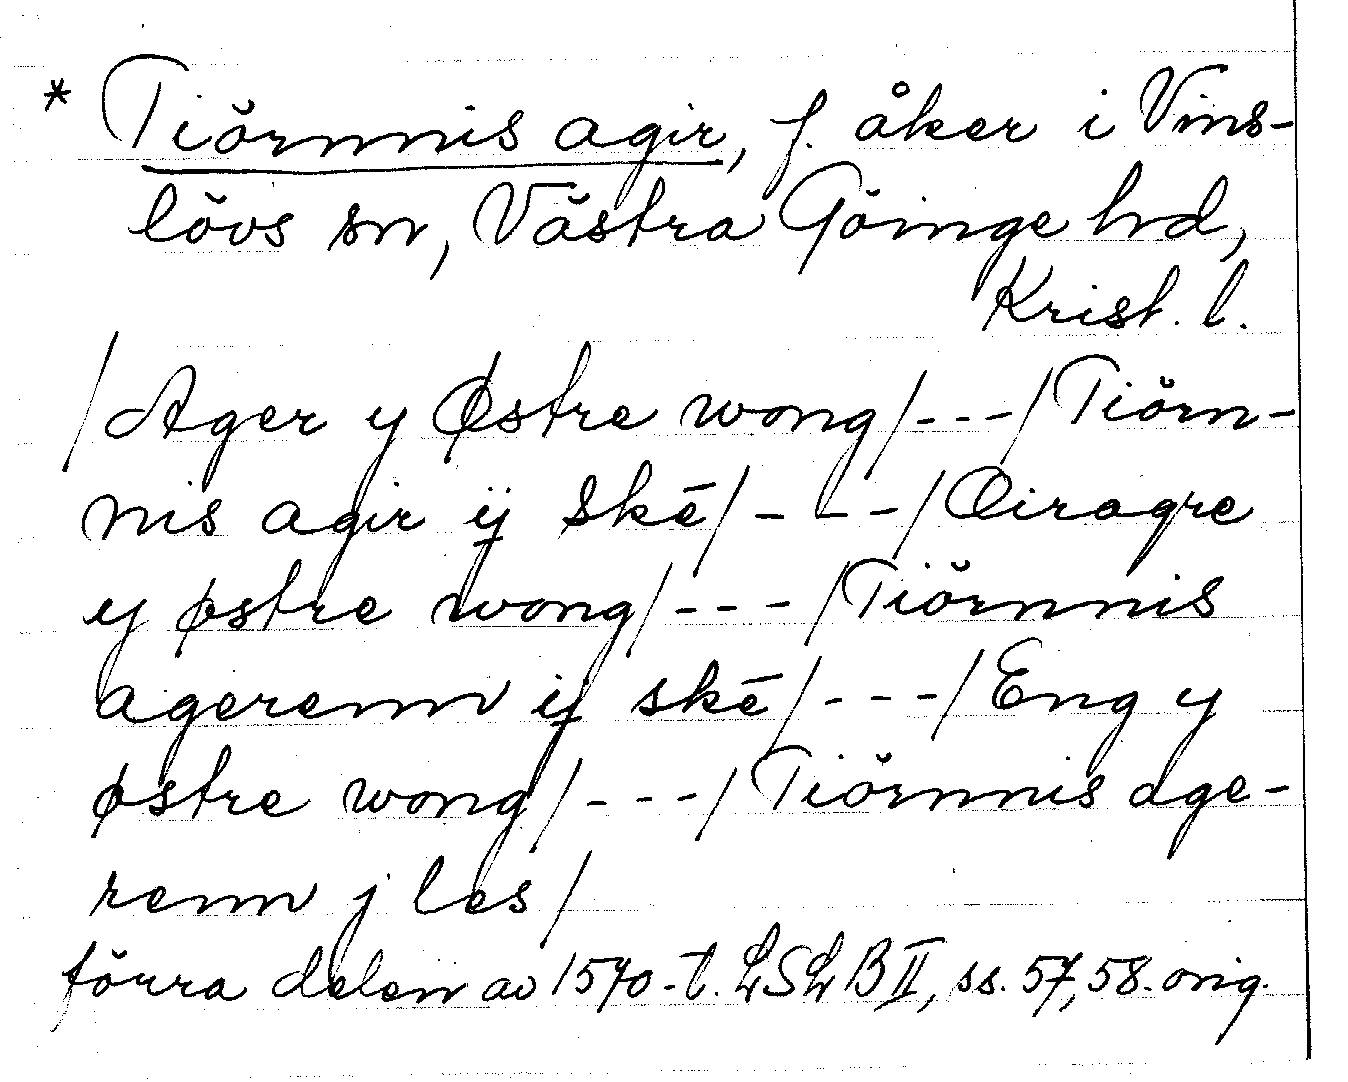 * Tiörnnis agir, f. åker i Vins-
lövs sn, Västra Göinge hd,
Krist. l.
/Ager y Østre wong/---/Tiörn-
nis agir ÿ Skē/---/Oiragre
y østre wong/---/Tiörnnis
agerenn ij skē/---/Eng y
østre wong/---/Tiörnnis age-
renn j les/
förra delen av 1570-t. LSLB II, ss. 57, 58. orig.